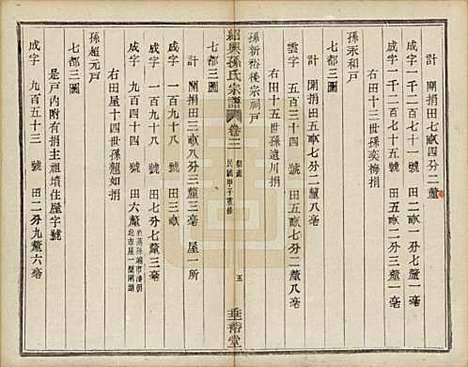 計 開捐田七畝四分二釐
成字 一千二百七十一號 田二畝
成字 一千一百七十五號 田五畝四分二釐
右田十三世孫奕梅捐
孫永和戶
雲字 五百三十四號 田五畝七分二釐
右田十五世孫遠川捐
孫新裕後宗祠戶
紹興孫氏宗譜 卷三
民國甲子重修
五
垂裕堂
七都三圖
計 開捐田三畝八分三釐三毫 屋一所
成字 九百五十八號 田三畝
成字 一千一百七十八號 田七分七釐三毫
右田屋十四世孫趯如捐
七都三圖
孫超元戶
是戶內附有捐主祖墳住屋字號
成字 九百五十三號 田二分九釐六毫